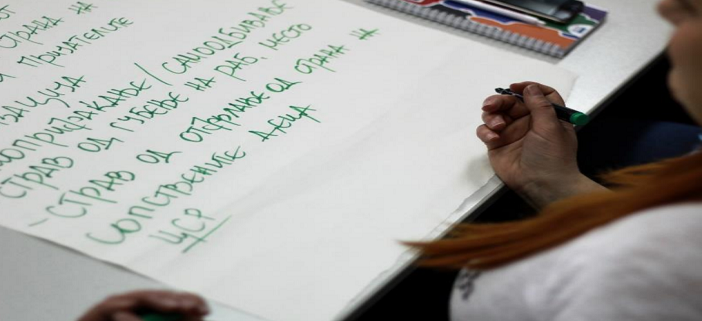 СТРАНА НА
ПРИЈАТЕЛИТЕ
САМООДБИВАЊЕ
СТРАВ ОД ГУБЕЊЕ НА РАБ. МЕСТО
- СТРАВ ОД ОТФРЛАЊЕ ОД СТРАНА НА
СОПСТВЕНИТЕ ДЕЦА
ЦСР